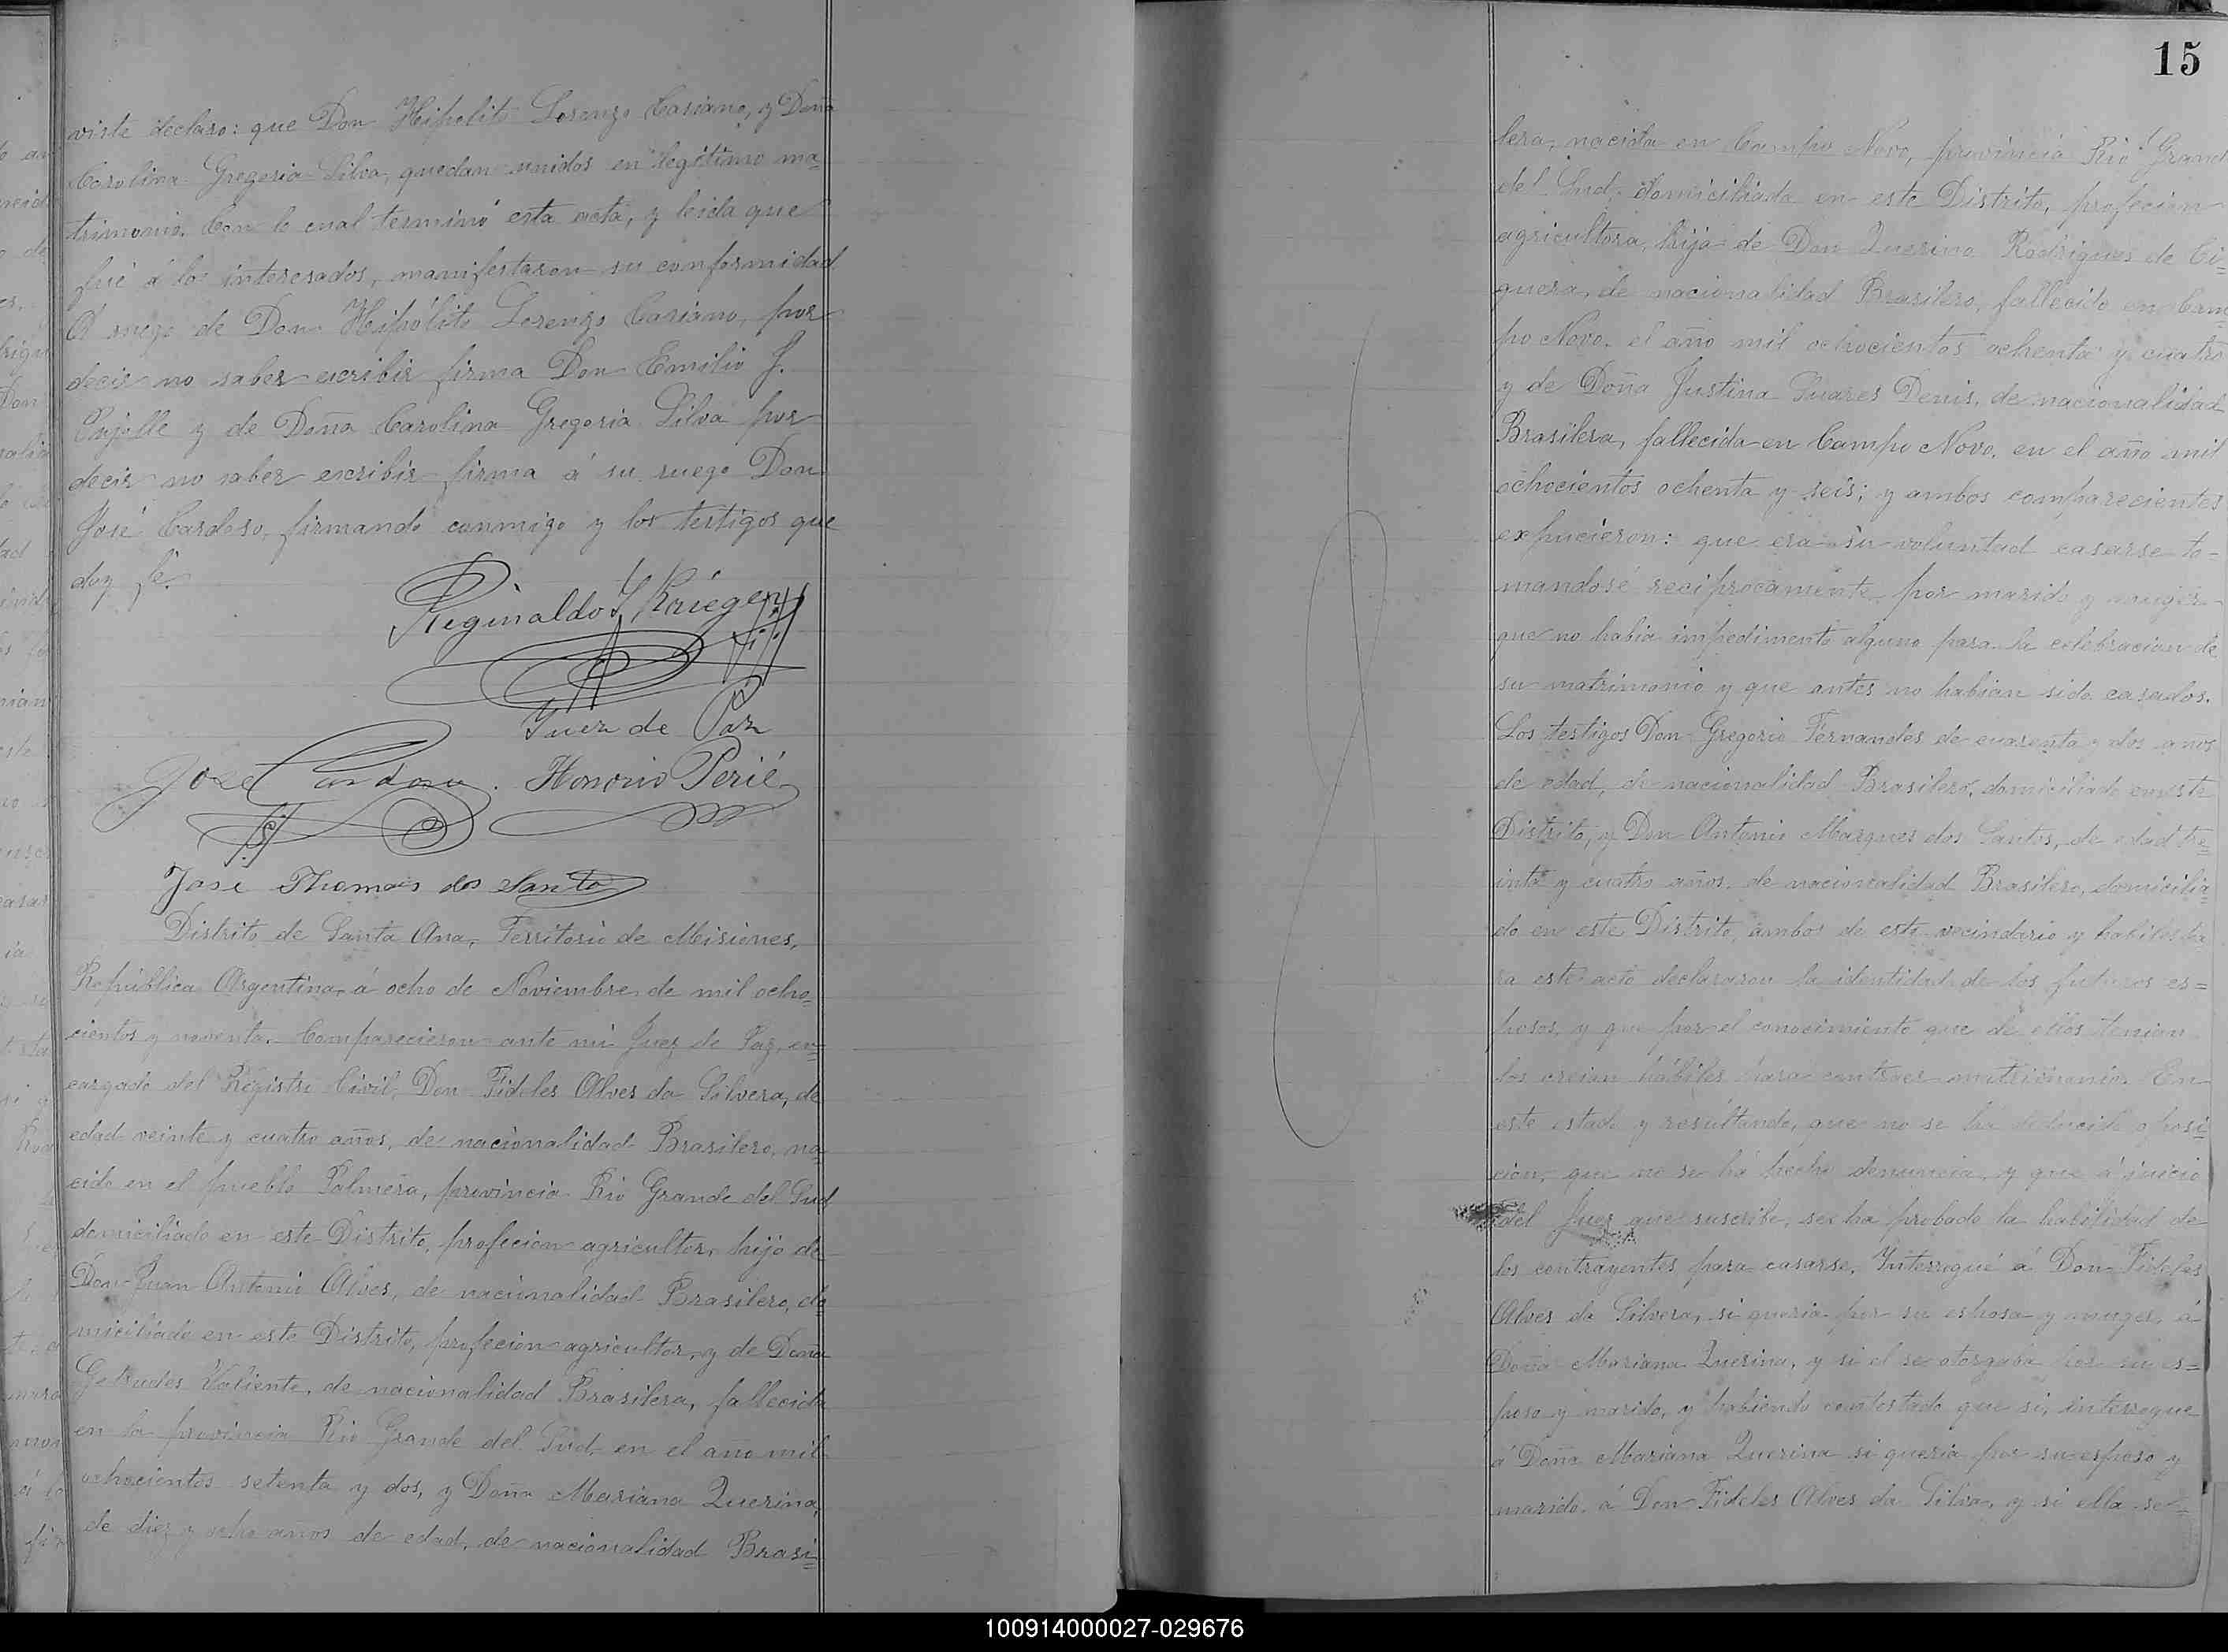 viste declaro: que Don Hipolito Lorenzo Cariano, y Doña
Carolina Gregoria Silva, quedan unidos en legítimo ma=
trimonio. Con lo cual terminó esta acta, y leida que
fué á los interesados, manifestaron su conformidad
A ruego de Don Hipólito Lorenzo Cariano, por
decir no saber escribir firma Don Emilio J.
y de Doña Carolina Gregoria Silva por
decir no saber escribir firma á su ruego Don
José Cardoso, firmando conmigo y los testigos que
doy fé.
Reginaldo Y Krieger
Juez de Paz
Jose Cardoso. Honorio Perié
Jose Thomas dos Santo
Distrito de Santa Ana, Territorio de Misiones,
República Argentina, á ocho de Noviembre de mil ocho=
cientos y noventa. Comparecieron ante mi Juez de Paz, en=
cargado del Registro Civil, Don Fideles Alves da Silvera, de
edad veinte y cuatro años, de nacionalidad Brasilero, na=
cido en el pueblo Palmera, provincia Rio Grande del Sud
domiciliado en este Distrito, profecion agricultor, hijo de
Don Juan Antonio Alves, de nacionalidad Brasilero, do=
miciliado en este Distrito, profecion agricultor, y de Dona
Getrudes Valiente, de nacionalidad Brasilera, fallecida
en la provincia Rio Grande del Sud, en el año mil
ochocientos setenta y dos, y Doña Mariana Querina,
de diez y ocho años de edad, de nacionalidad Brasi=
15
lera, nacida en Campo Novo, provincia Rio Grand
del Sud, domiciliada en este Distrito, profecion
agricultora, hija de Don Querino Rodrigues de Ci=
quera, de nacionalidad Brasilero, fallecido en Cam=
po Novo, el año mil ochocientos ochenta y cuatro
y de Doña Justina Suares Denis, de nacionalidad
Brasilera, fallecida en Campo Novo, en el año mil
ochocientos ochenta y seis; y ambos comparecientes
expucieron: que era su voluntad casarse to-
mandosé reciprocamente por marido y muger
que no habia impedimento alguno para la celebracion de
su matrimonio y que antes no habian sido casados.
Los testigos Don Gregorio Fernandes de cuarenta y dos anos
de edad, de nacionalidad Brasilero, domiciliado en este
Distrito, y Don Antonio Marques dos Santos, de edad tre=
inta y cuatro años, de nacionalidad Brasilero, domicilia=
do en este Distrito, ambos de este vecindario y habiles pa
ra este acto declararon la identidad de los futuros es=
posos, y que por el conocimiento que de ellos tenian
los creian hábiles para contraer matrimonio. En
este estado y resultando, que no se ha deducido oposi=
cion, que no se há hecho denuncia, y que á juicio
del Juez que suscribe, se ha probado la habilidad de
los contrayentes para casarse, Interrogué á Don Fideles
Alves da Silvera, si queria por su esposa y muger, á
Doña Mariana Querina, y si el se otorgaba por su es=
poso y marido, y habiendo contestado que si, interrogue
á Doña Mariana Querina si queria por su esposo y
marido, á Don Fideles Alves da Silva, y si ella se=
100914000027-029676